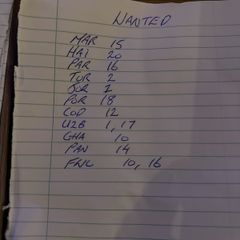 WANTED
MAR 15
HAI 20
PAR 16
TUR 2
CUR 2
POR 18
COD 12
UZB 1, 17
GHA 10
PAN 14
FWC 10, 16